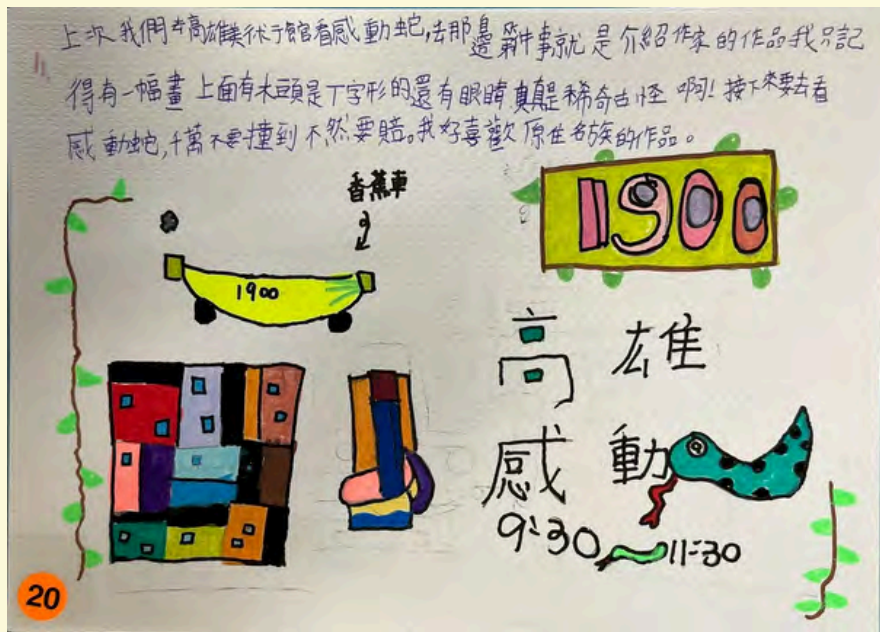 上次我們去高雄美術館看感動蛇,去那邊第一件事就是介紹作家的作品我只記
得有一幅畫上面有木頭是丁字形的還有眼睛真是稀奇古怪啊!接下來要去看
感動蛇,千萬不要撞到不然要賠。我好喜歡原住名族的作品。
香蕉車
1900
1900
高雄
感動
9:30 11:30
20